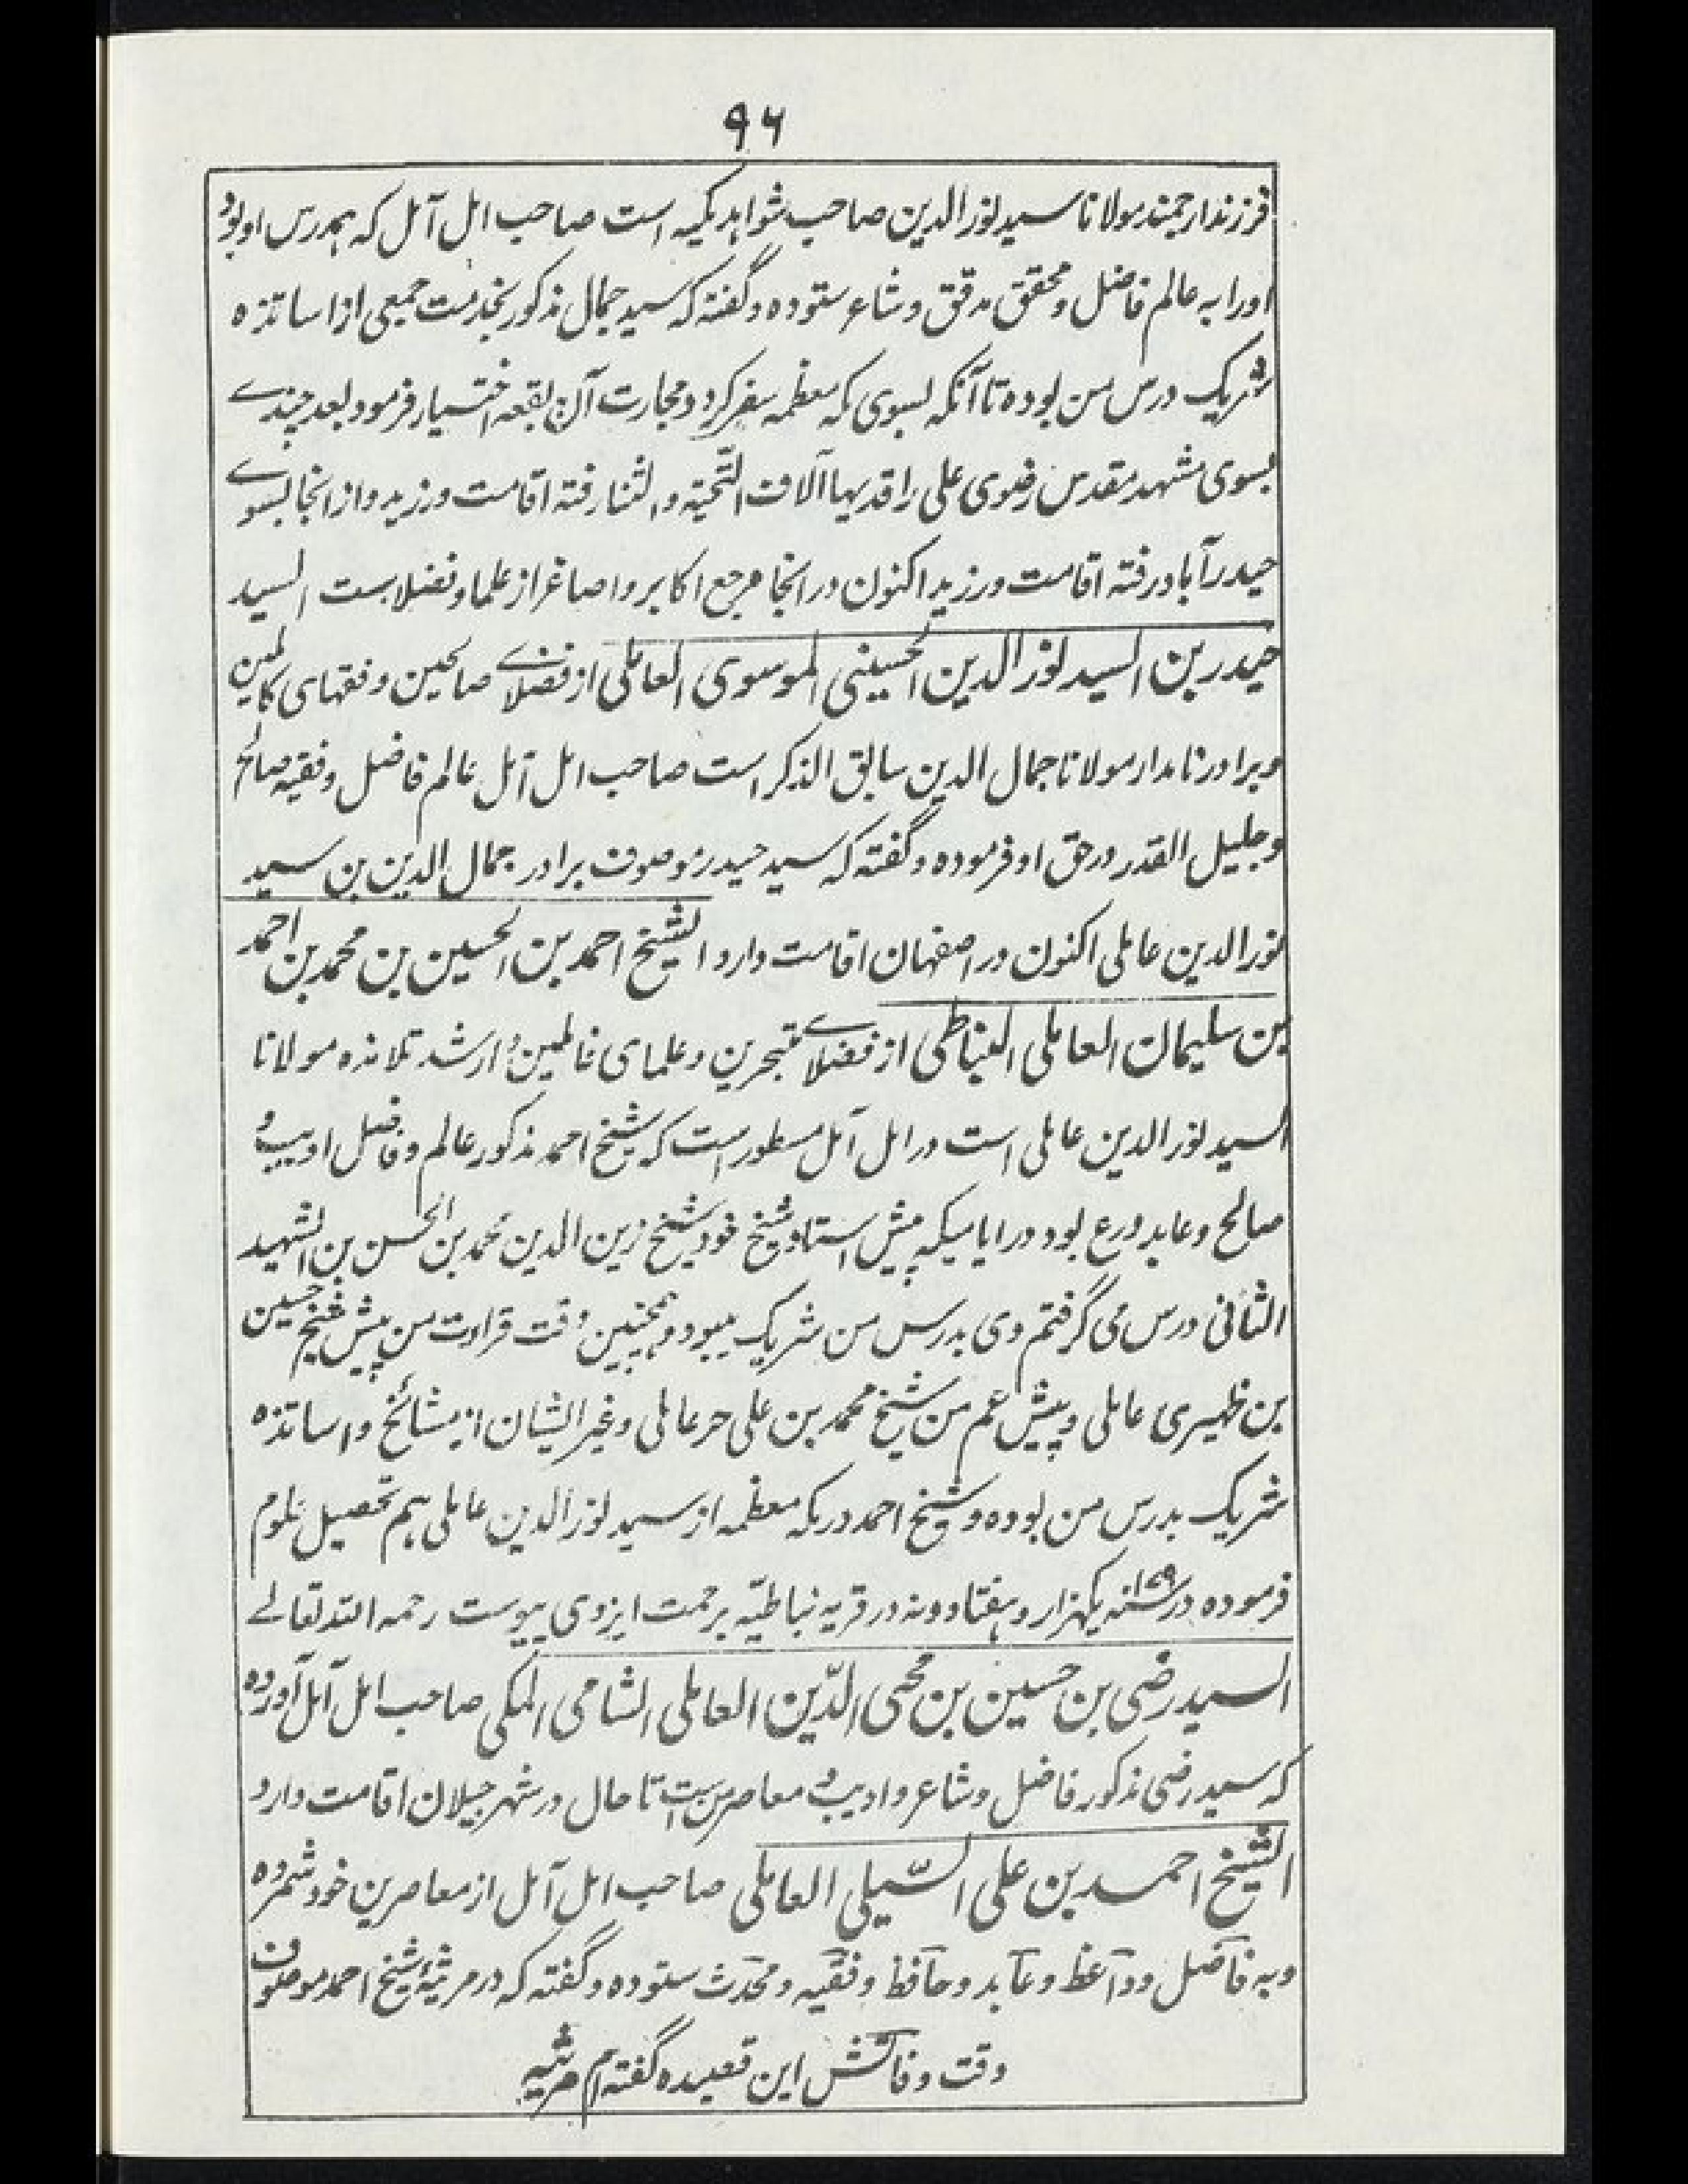 ۹۶
فرزند ارجمند مولانا سید نور الدین صاحب شواهد مکیه است صاحب امل آمل که همدرس او بود
او را به عالم فاضل و محقق مدقق و شاعر ستوده و گفته که سید جمال مذکور بخدمت جمیعی از اساتذه
شریک درس من بوده تا آنکه بسوی مکه معظمه سفر کرد و مجاورت آن بقعه اختیار فرمود بعد چندے
بسوی مشهد مقدس رضوی علی راقدیها آلاف التّحیّة و الثنا رفته اقامت ورزید و از انجا بسوے
حیدرآباد رفته اقامت ورزید اکنون در انجا مرجع اکابر و اصاغر از علما و فضلاست السید
حیدر بن السید نور الدین الحسینی الموسوی العاملی از فضلاے صالحین و فقهای کاملین
و برادر نامدار مولانا جمال الدین سابق الذکر است صاحب امل آمل عالم فاضل و فقیه صالح
و جلیل القدر در حق او فرموده و گفته که سید حیدر موصوف برادر جمال الدین بن سید
نور الدین عاملی اکنون در اصفهان اقامت دارد الشیخ احمد بن الحسین بن محمد بن احمد
بن سلیمان العاملی النباطی از فضلاے متبحرین و علمای عاملین و ارشد تلامذه مولانا
السید نور الدین عاملی است در امل آمل مسطور است که شیخ احمد مذکور عالم و فاضل ادیب و
صالح و عابد و ورع بود در ایامیکه پیش استاد و شیخ خود شیخ زین الدین محمد بن الحسن بن الشهید
الثانی درس می گرفتم وی بدرس من شریک میبود و همچنین وقت قراءت من پیش شیخ حسین
بن ظهیری عاملی و پیش عم من شیخ محمد بن علی حر عاملی و غیر ایشان از مشائخ و اساتذه
شریک بدرس من بوده و شیخ احمد در مکه معظمه از سید نور الدین عاملی هم تحصیل علوم
فرموده در سنه ۱۰۷۹ یکهزار و هفتاد و نه در قریه نباطیّه برحمت ایزوی پیوست رحمه الله تعالے
السید رضی بن حسین بن محی الدّین العاملی الشامی المکی صاحب امل آمل آورده
که سید رضی مذکور فاضل و شاعر و ادیب و معاصر من است تا حال در شهر جیلان اقامت دارد
الشیخ احمد بن علی السّیلی العاملی صاحب امل آمل از معاصرین خود شمرده
و به فاضل و واعظ و عابد و حافظ و فقیه و محدث ستوده و گفته که در مرثیهٔ شیخ احمد موصوف
وقت وفاتش این قصیده گفته ام مرثیه